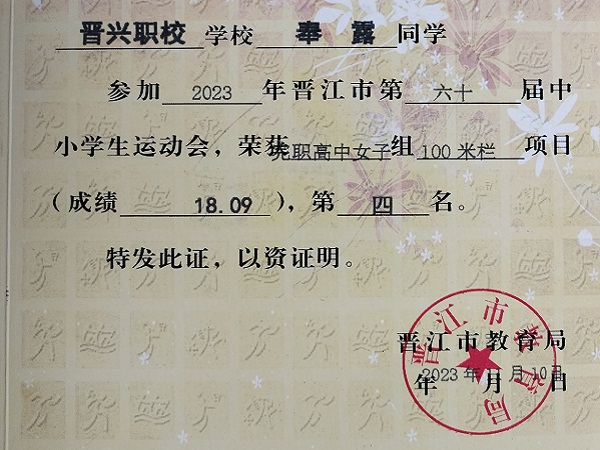 晋兴职校学校 奉 露 同学
参加 2023 年晋江市第 六十 届中
小学生运动会，荣获 职高中女子组 100 米栏 项目
（成绩 18.09 ），第 四 名。
特发此证，以资证明。
晋江市教育局
2023 年 月 10 日
晋江市教育局